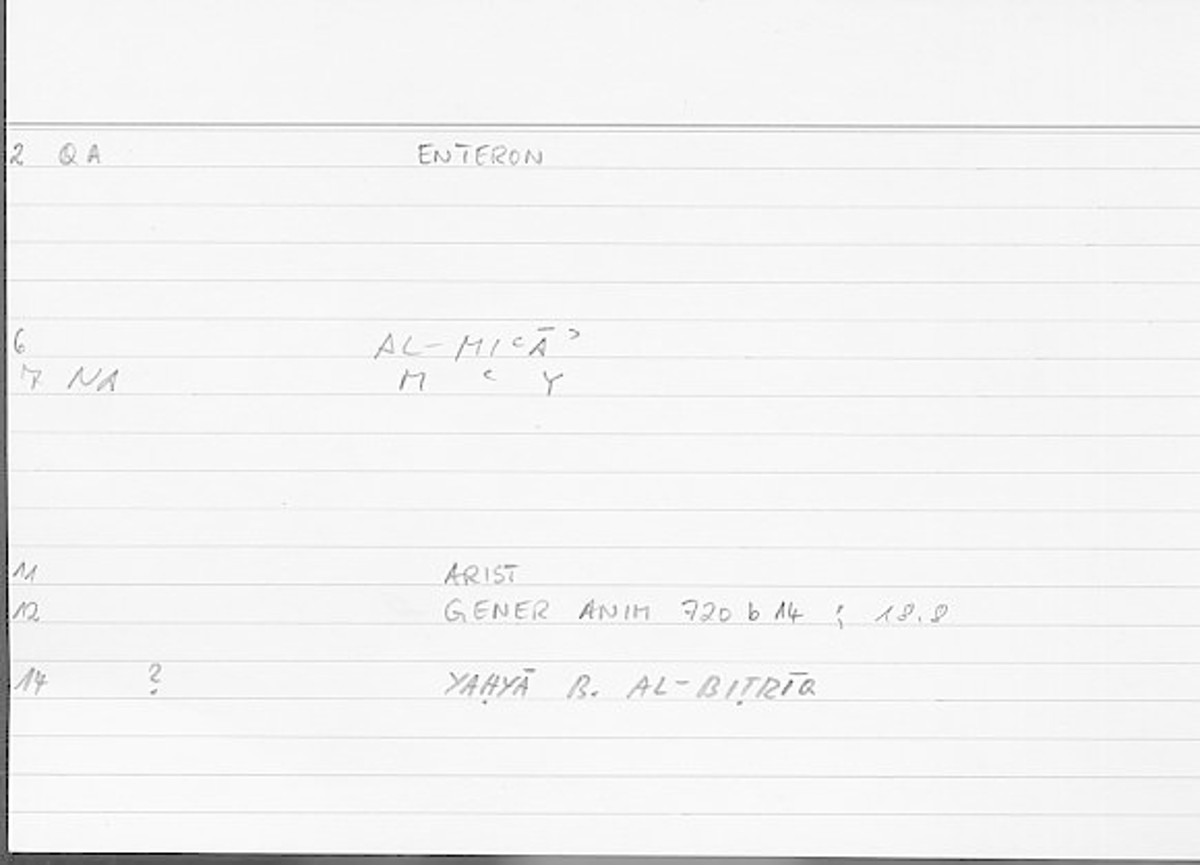 2 QA ENTERON
6 AL-MIʿĀʾ
7 NA M ʿ Y
11 ARIST
12 GENER ANIM 720 b 14 ; 18.8
14 ? YAḤYĀ B. AL-BIṬRĪQ